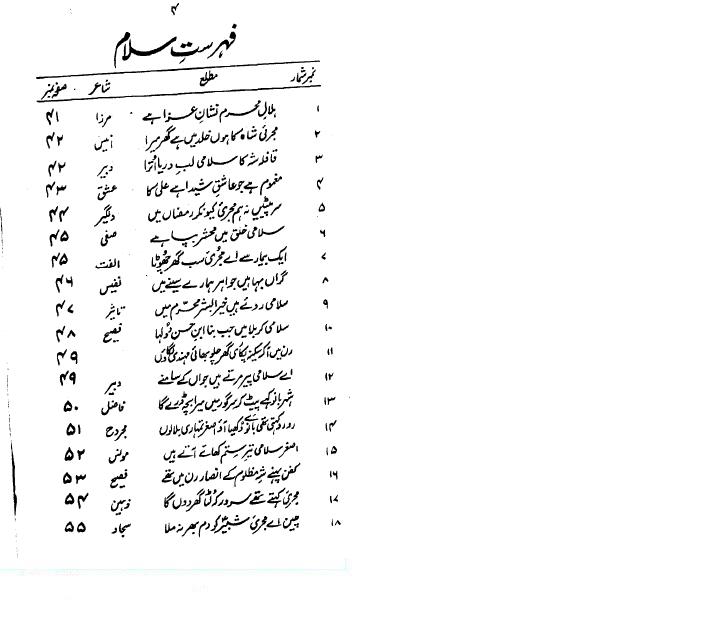 ۴
فہرستِ سلام
نمبر شمار مطلع شاعر صفحہ نمبر
۱ ہلالِ محرم نشانِ عزا ہے مرزا ۴۱
۲ مجرئی شاہ کا ہوں خلد میں ہے گھر میرا انیس ۴۲
۳ قافلہ شہ کا سلامی لبِ دریا اُترا دبیر ۴۲
۴ مغموم ہے جو عاشقِ شیدا ہے علی کا عشق ۴۳
۵ سر پیٹیں نہ ہم مجرئی کیونکر رمضاں میں دلگیر ۴۴
۶ سلامی خلق میں محشر بپا ہے صفی ۴۵
۷ ایک بیمار سے اے مجرئی سب گھر چھوٹا الفت ۴۵
۸ گراں بہا ہیں جواہر ہمارے سینے میں نفیس ۴۶
۹ سلامی روئے ہیں خیر البشر محرّم میں تاثیر ۴۷
۱۰ سلامی کربلا میں جب بنا ابنِ حسن دُولہا فصیح ۴۸
۱۱ رن میں آکر سکینہ پکاری گھر چلو بھائی مہندی لگا دوں ۴۹
۱۲ اے سلامی پیر مرتے ہیں جواں کے سامنے دبیر ۴۹
۱۳ شہر بانو کہے پیٹ کر سر گور میں میرا بچہ ڈرے گا فاضل ۵۰
۱۴ رو رو کہتی تھی بانوئے دکھیا آؤ اصغر تمہاری بلا لوں مجروح ۵۱
۱۵ اصغر سلامی تیرِ ستم کھائے آتے ہیں مونس ۵۲
۱۶ کفن پہنے شہِ مظلوم کے انصار رن میں تھے فصیح ۵۳
۱۷ مجرئی کہتے تھے سرور کہ لٹا گھر دوں گا ذہین ۵۴
۱۸ چین اے مجرئی شبیرؑ کو دم بھر نہ ملا سجاد ۵۵